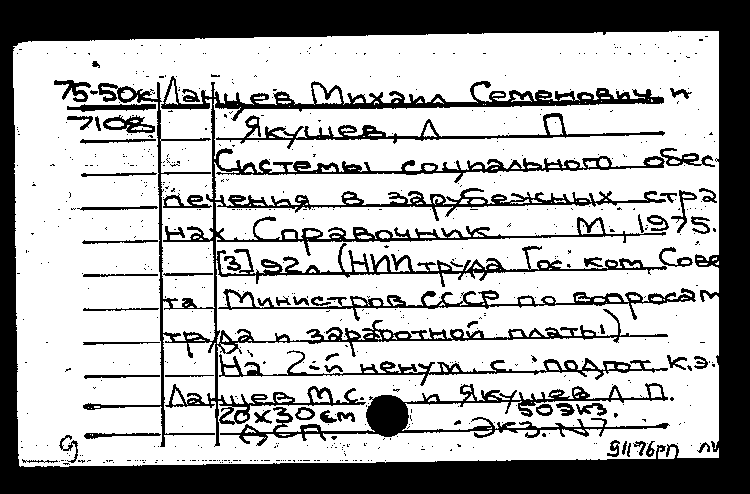 75-50к Ланцев, Михаил Семенович и
7108 Якушев, Л П
Системы социального обес-
печения в зарубежных стра
нах. Справочник. М., 1975.
[3], 92 л. (НИИ труда Гос. ком. Сове
та Министров СССР по вопросам
труда и заработной платы)
На 2-й ненум. с.: подгот. к.э.
Ланцев М.С. и Якушев Л П.
20х30 см 50 экз.
ДСП. Экз. N7
91176рп